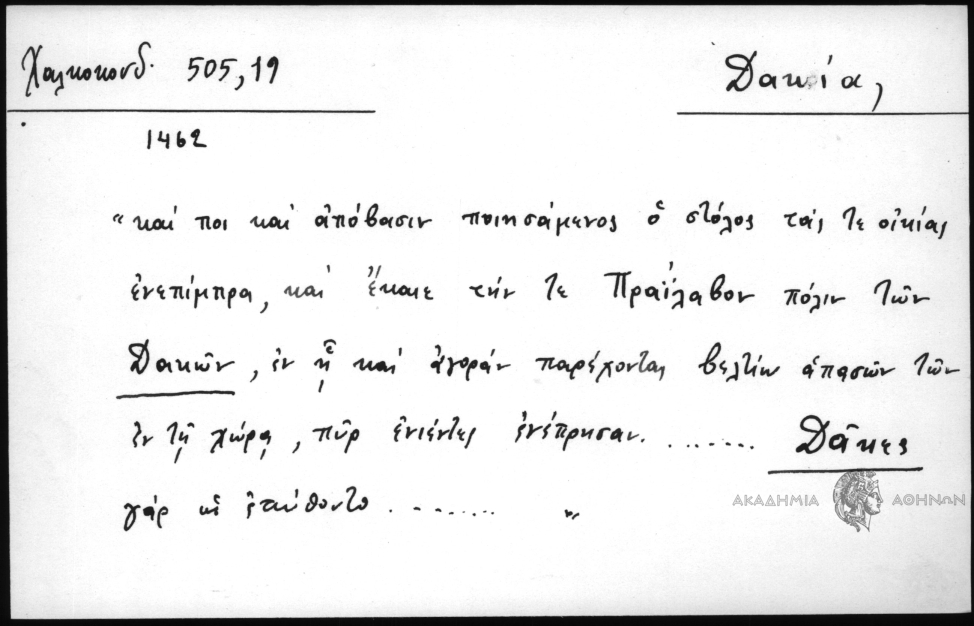 Χαλκοκονδ. 505,19
Δακία,
1462
“καί ποι καὶ ἀπόβασιν ποιησάμενος ὁ στόλος τάς τε οἰκίας
ἐνεπίμπρα, καὶ ἔκαιε τήν τε Πραΐλαβον πόλιν τῶν
Δακῶν, ἐν ᾗ καὶ ἀγορὰν παρέχονται βελτίω ἁπασῶν τῶν
ἐν τῇ χώρᾳ, πῦρ ἐνιέντες ἐνέπρησαν. ........ Δᾶκες
γάρ ὡς ἐπύθοντο ........ ”
ΑΚΑΔΗΜΙΑ ΑΘΗΝΩΝ